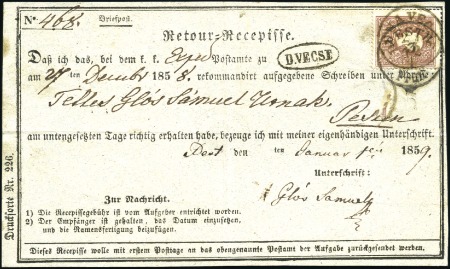 No. 468. Briefpost.
Retour-Recepisse.
Daß ich das, bei dem k. k. Postamte zu D.VECSE
am 27 Decembr 1858. rekommandirt aufgegebene Schreiben unter Adresse:
Telles Glós Sámuel Urnak,
Pesten
am untengesetzten Tage richtig erhalten habe, bezeuge ich mit meiner eigenhändigen Unterschrift.
Pest den ten Januar 1859.
Unterschrift:
Glós Samuel
Zur Nachricht.
1) Die Recepissegebühr ist vom Aufgeber entrichtet worden.
2) Der Empfänger ist gehalten, das Datum einzusetzen,
und die Namensfertigung beizufügen.
Dieses Recepisse wolle mit erstem Posttage an das obengenannte Postamt der Aufgabe zurückgesendet werden.
Drucksorte Nr. 226.